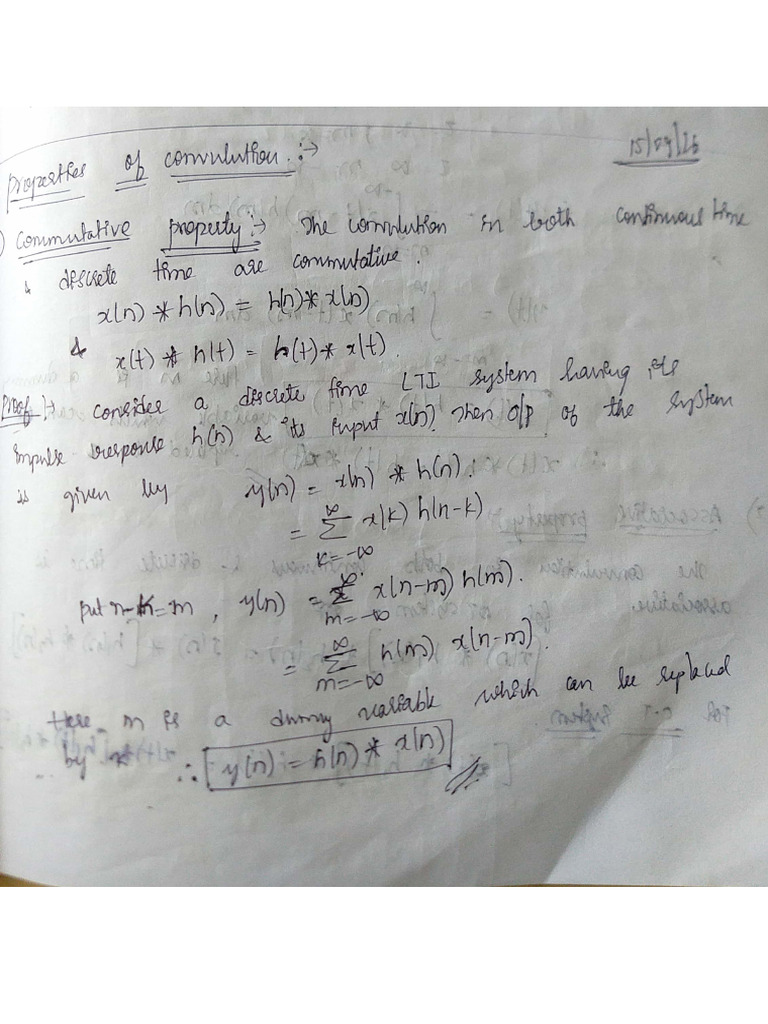 15/09/26
Properties of convolution :→
) Commutative property :→ The convolution in both continuous time
& discrete time are commutative.
x(n) * h(n) = h(n) * x(n)
& x(t) * h(t) = h(t) * x(t).
Proof :- consider a discrete time LTI system having its
impulse response h(n) & its input x(n). Then o/p of the system
is given by y(n) = x(n) * h(n).
= ∑_{k=-∞}^{∞} x(k) h(n-k)
put n-k=m, y(n) = ∑_{m=-∞}^{∞} x(n-m) h(m).
= ∑_{m=-∞}^{∞} h(m) x(n-m).
Here m is a dummy variable which can be replaced
by * ∴ y(n) = h(n) * x(n)